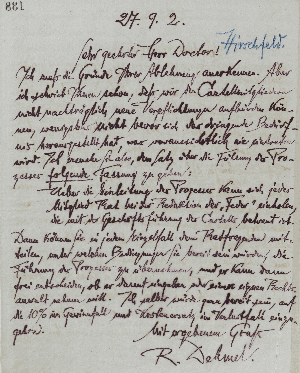 188
27. 9. 2.
Hirschfeld.
Sehr geehrter Herr Doctor!
Ich muß die Gründe Ihrer Ablehnung anerkennen. Aber
ich schrieb Ihnen schon, daß wir den Cartellmitgliedern
nicht nachträglich neue Verpflichtungen aufbürden kön-
nen, wenigstens nicht bevor sich das dringende Bedürf-
nis herausgestellt hat, was voraussichtlich nie eintreten
wird. Ich den Satz über die Führung der Pro-
zesse folgende Fassung zu geben:
Über die Einleitung der Prozesse kann sich jedes
Mitglied Rat bei der Redaction der „Feder“ einholen,
die mit der Geschäftsführung des Cartells betraut ist.
Dann können Sie in jedem Einzelfall dem Ratfragenden mit-
teilen, unter welchen Bedingungen Sie bereit sein würden, die
Führung des Prozesses zu übernehmen, und er kann dann
frei entscheiden, ob er darauf eingehen oder einen eigenen Rechts-
anwalt nehmen will. Ich selber würde gern bereit sein, auf
die 10% im Gewinnfall und Kostenersatz im Verlustfall einzu-
gehen.
Mit ergebenem Gruß
R. Dehmel.